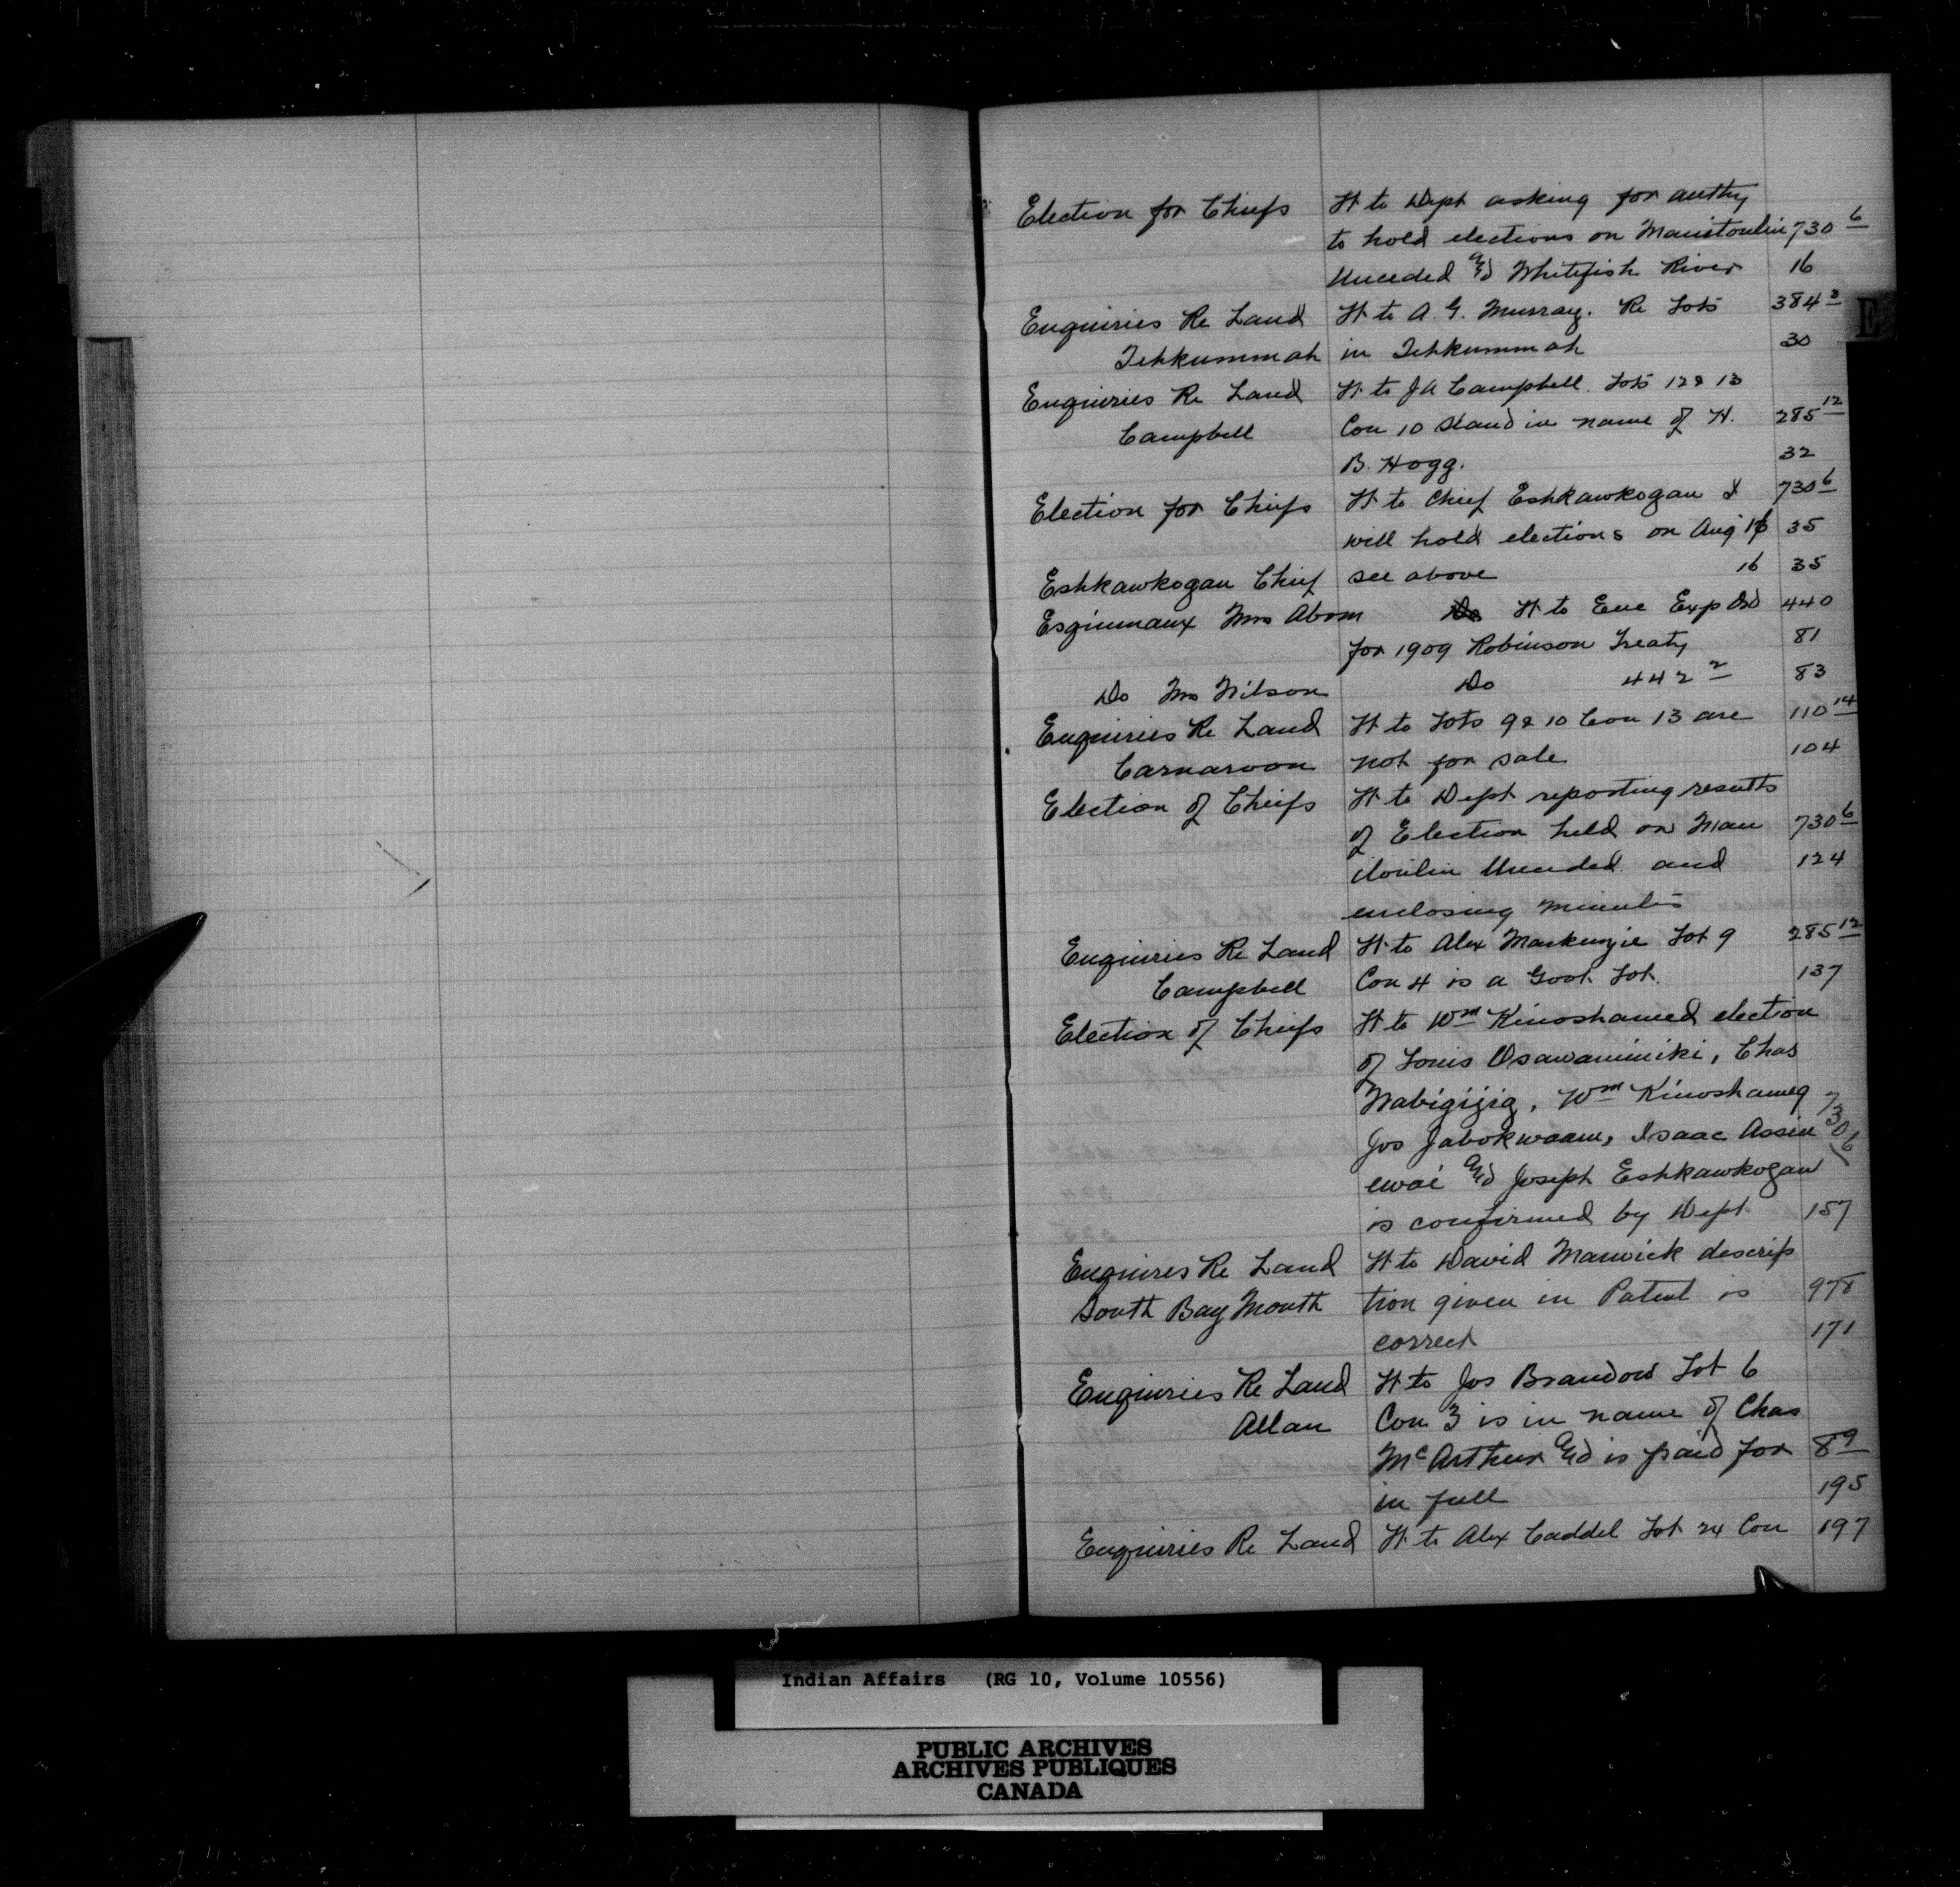 Election for Chiefs Lt to Dept asking for authy
to hold elections on Manitoulin 730 6
Unceded and Whitefish River 16
Enquiries Re Land Lt to A. G. Murray. Re Lots 384 3
Tehkummah in Tehkummah 30
Enquiries Re Land Lt to JA Campbell. Lots 12 & 13
Campbell Con 10 stand in name of H. 285 12
B. Hogg. 32
Election for Chiefs Lt to Chief Eshkawkogan I 730 6
will hold elections on Aug 16 35
Eshkawkogan Chief see above 16 35
Esquimaux Mrs Abram Lt to Enc Exp Ord 440
for 1909 Robinson Treaty 81
Do Mrs Wilson Do 442 2 83
Enquiries Re Land Lt to Lots 9 & 10 Con 13 are 110 14
Carnarvon not for sale 104
Election of Chiefs Lt to Dept reporting results
of Election held on Man 730 6
itoulin Unceded. and 124
enclosing minutes
Enquiries Re Land Lt to Alex Mackenzie Lot 9 285 12
Campbell Con 4 is a Govt Lot. 137
Election of Chiefs Lt to Wm Kinoshamed election
of Louis Osawaminiki, Chas
Wabigijig, Wm Kinoshameg 7306
Jos Jabokwaam, Isaac Assin
ewai and Joseph Eshkawkogan
is confirmed by Dept. 157
Enquires Re Land Lt to David Marwick descrip
South Bay Mouth tion given in Patent is 978
correct 171
Enquiries Re Land Lt to Jos Brandow Lot 6
Allan Con 3 is in name of Chas
McArthur and is paid for 8 9
in full 195
Enquiries Re Land Lt to Alex Caddel Lot 24 Con 197
E
Indian Affairs (RG 10, Volume 10556)
PUBLIC ARCHIVES
ARCHIVES PUBLIQUES
CANADA